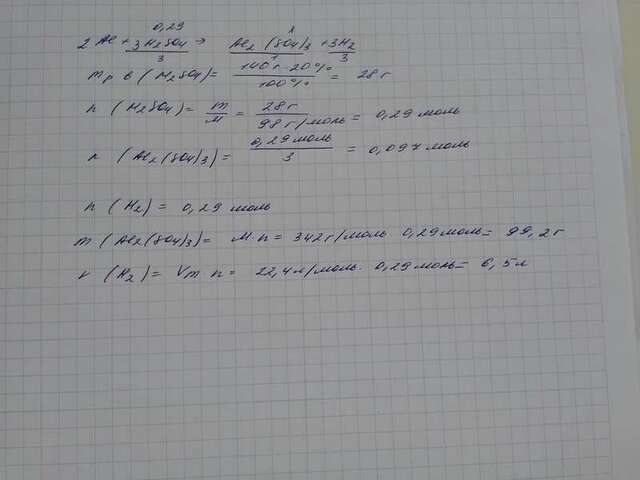 0,29 x
2 Al + 3H2SO4 → Al2(SO4)3 + 3H2
3 1 3
mр в (H2SO4) = 140 г · 20% / 100% = 28 г
n (H2SO4) = m / M = 28 г / 98 г/моль = 0,29 моль
n (Al2(SO4)3) = 0,29 моль / 3 = 0,097 моль
n (H2) = 0,29 моль
m (Al2(SO4)3) = M · n = 342 г/моль 0,29 моль = 99,2 г
V (H2) = Vm n = 22,4 л/моль · 0,29 моль = 6,5 л